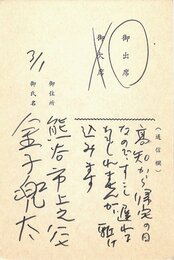 御出席
御欠席
(通信欄)
高知から帰宅の日
なのですこし遅れる
かもしれませんが駆け
込みます
3/1
御住所
御氏名
熊谷市上之
金子兜太